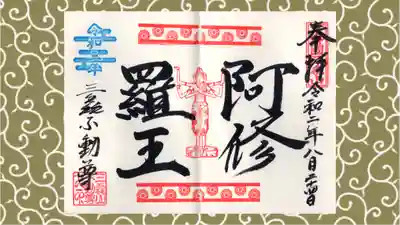 奉拝
令和二年八月二十四日
阿修
羅王
令和二年
三荒不動尊